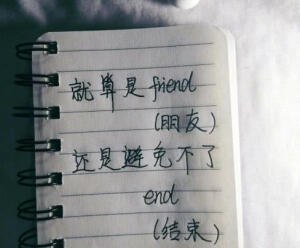 就算是friend
(朋友)
还是避免不了
end
(结束)